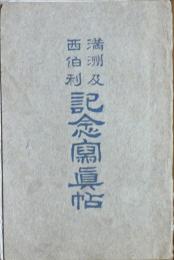 満洲及
西伯利
記念寫眞帖